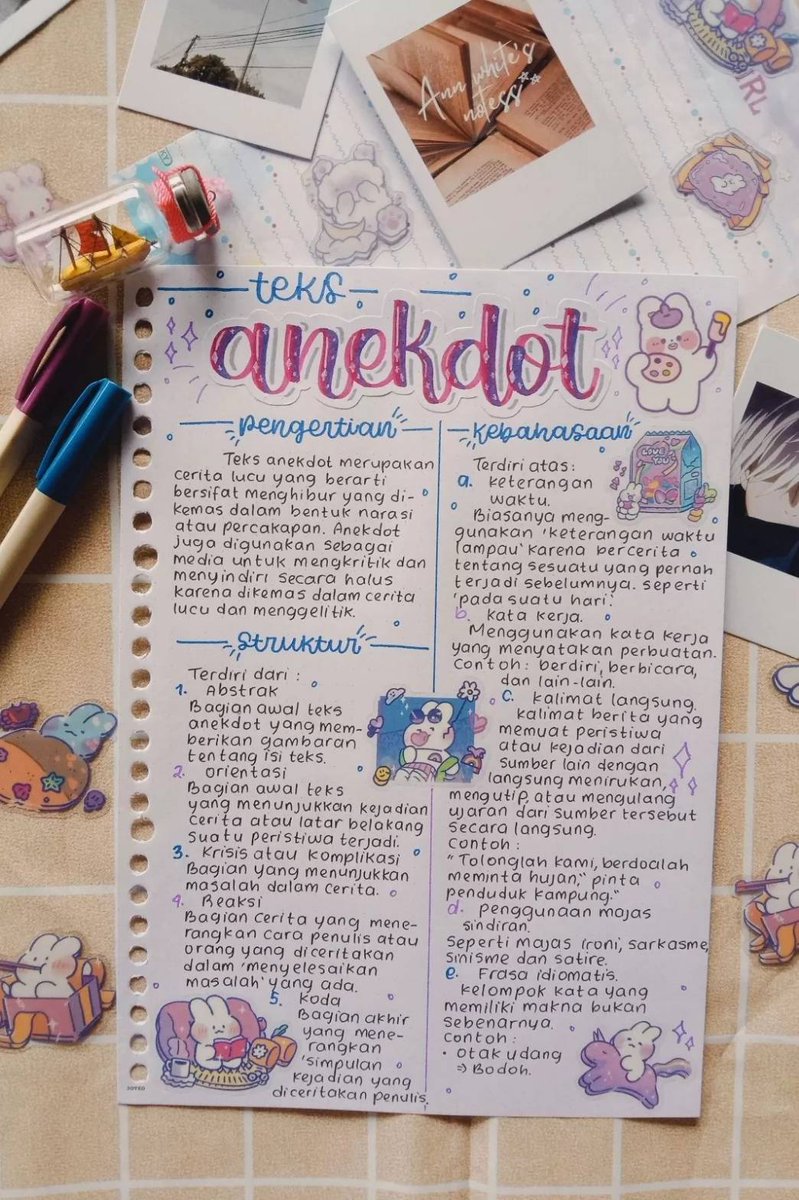 Ann white's
notess
teks
anekdot
pengertian
Teks anekdot merupakan
cerita lucu yang berarti
bersifat menghibur yang di-
kemas dalam bentuk narasi
atau percakapan. Anekdot
juga digunakan sebagai
media untuk mengkritik dan
menyindiri secara halus
karena dikemas dalam cerita
lucu dan menggelitik.
Struktur
Terdiri dari :
1. Abstrak
Bagian awal teks
anekdot yang mem-
berikan gambaran
tentang isi teks.
2. orientasi
Bagian awal teks
yang menunjukkan kejadian
cerita atau latar belakang
suatu peristiwa terjadi.
3. Krisis atau komplikasi
Bagian yang menunjukkan
masalah dalam cerita.
4. Reaksi
Bagian cerita yang mene-
rangkan cara penulis atau
orang yang diceritakan
dalam 'menyelesaikan
masalah' yang ada.
5. Koda
Bagian akhir
yang mene-
rangkan
'simpulan
kejadian yang
diceritakan penulis.
JOYKO
Kebahasaan
Terdiri atas :
a. keterangan
waktu.
Biasanya meng-
gunakan 'keterangan waktu
lampau' karena bercerita
tentang sesuatu yang pernah
terjadi sebelumnya. seperti
'pada suatu hari'.
b. kata kerja.
Menggunakan kata kerja
yang menyatakan perbuatan.
Contoh : berdiri, berbicara,
dan lain-lain.
c. kalimat langsung.
kalimat berita yang
memuat peristiwa
atau kejadian dari
sumber lain dengan
langsung menirukan,
mengutip, atau mengulang
ujaran dari sumber tersebut
secara langsung.
Contoh :
"Tolonglah kami, berdoalah
meminta hujan," pinta
penduduk kampung."
d. penggunaan majas
sindiran.
Seperti majas ironi, sarkasme,
sinisme dan satire.
e. Frasa idiomatis.
kelompok kata yang
memiliki makna bukan
sebenarnya.
Contoh :
• otak udang
⇒ Bodoh.
LOVE
YOU